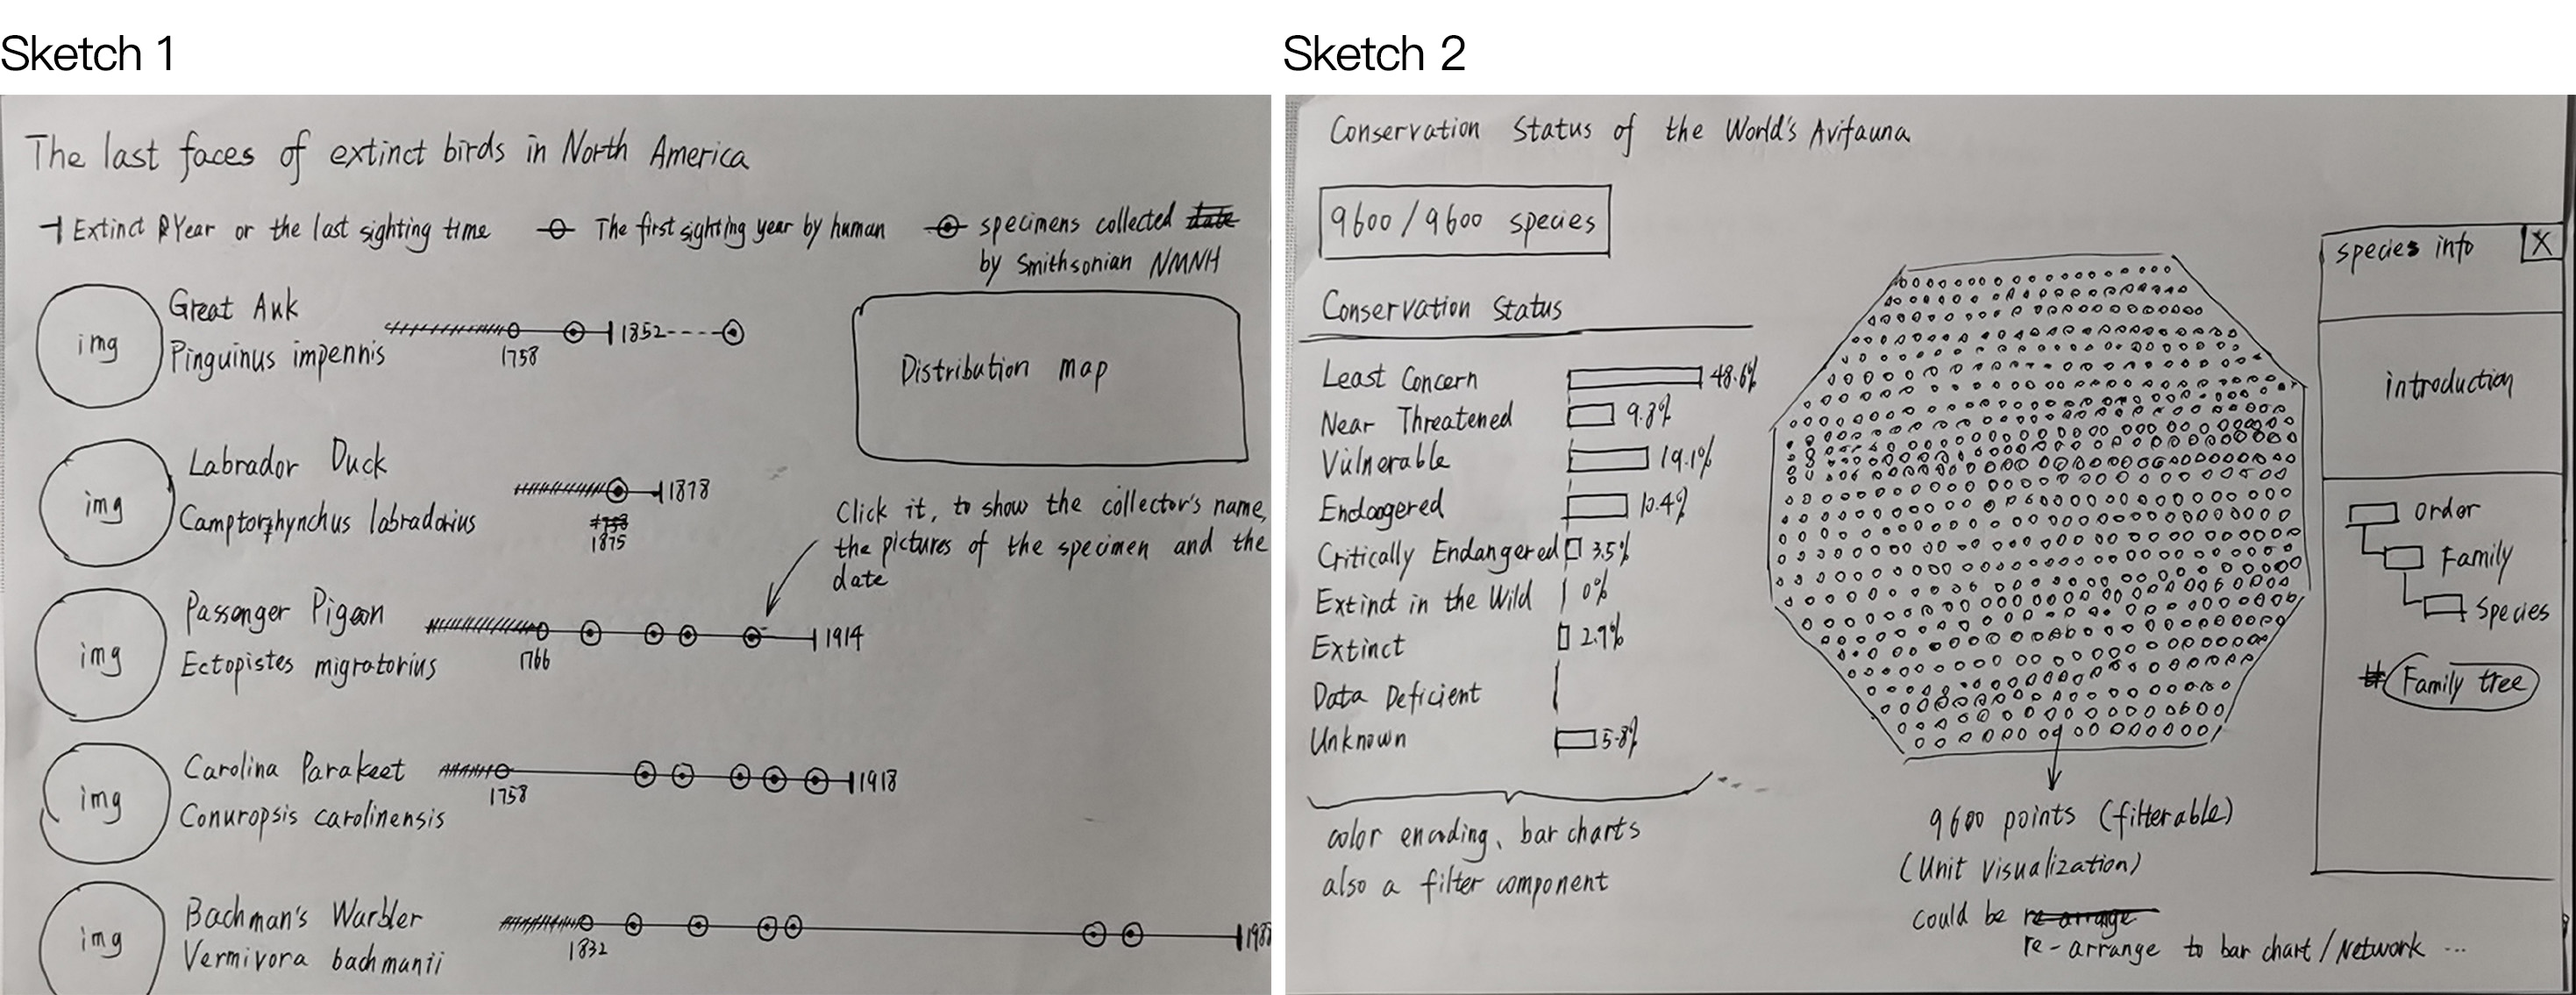 Sketch 1
The last faces of extinct birds in North America
Extinct Year or the last sighting time
The first sighting year by human
specimens collected date
by Smithsonian NMNH
img
Great Auk
Pinguinus impennis
1758
1852
Distribution map
img
Labrador Duck
Camptorhynchus labradorius
1878
1758
1875
Click it, to show the collector's name,
the pictures of the specimen and the
date
img
Passenger Pigeon
Ectopistes migratorius
1766
1914
img
Carolina Parakeet
Conuropsis carolinensis
1758
1918
img
Bachman's Warbler
Vermivora bachmanii
1832
Sketch 2
Conservation Status of the World's Avifauna
9600/9600 species
Conservation Status
Least Concern 48.6%
Near Threatened 9.8%
Vulnerable 19.1%
Endangered 10.4%
Critically Endangered 3.5%
Extinct in the Wild 0%
Extinct 2.9%
Data Deficient
Unknown 5.8%
color encoding, bar charts
also a filter component
9600 points (filterable)
(Unit Visualization)
could be re-arrange
re-arrange to bar chart/Network ...
species info X
introduction
Order
Family
Species
Family tree